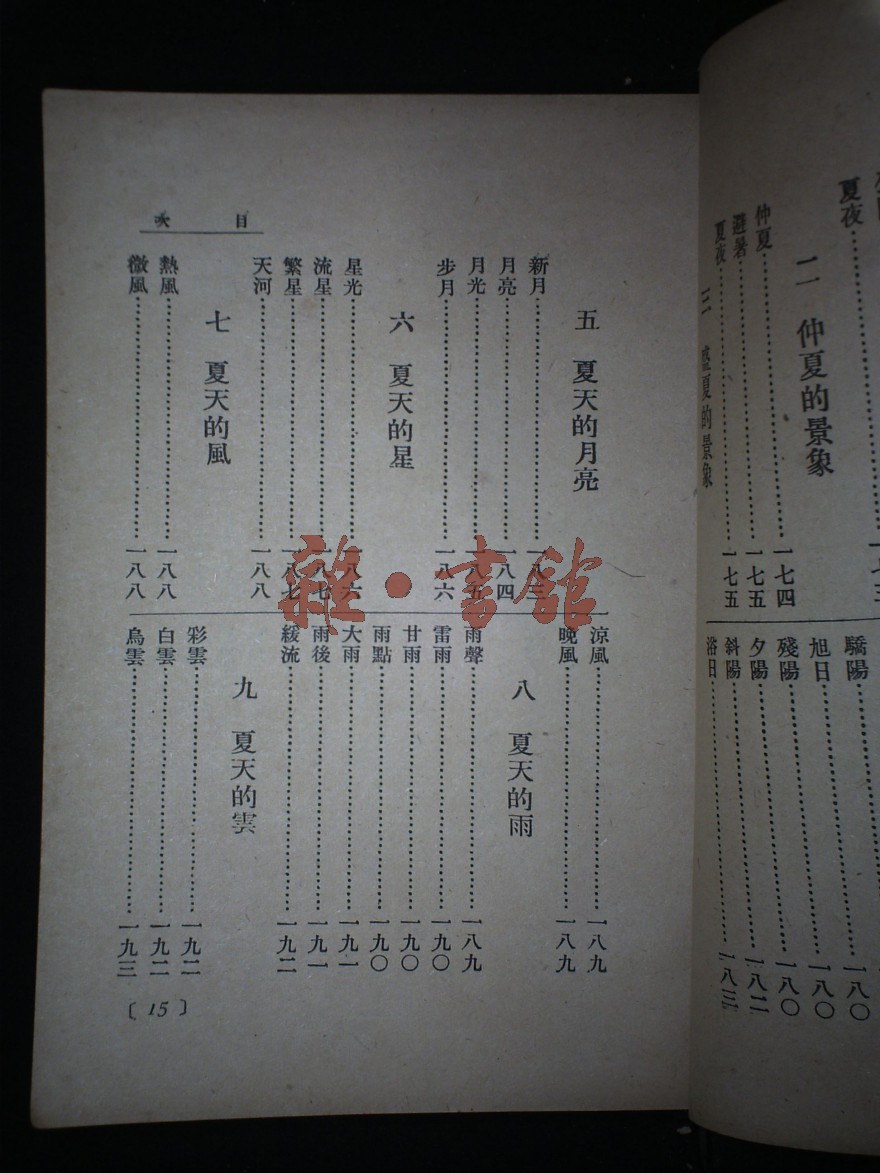 夏夜……一七三
二 仲夏的景象
仲夏……一七四
避暑……一七五
夏夜……一七五
三 盛夏的景象
驕陽……一八〇
旭日……一八〇
殘陽……一八〇
夕陽……一八二
斜陽……一八三
浴日……
目次
五 夏天的月亮
新月……一八三
月亮……一八四
月光……一八五
步月……一八六
六 夏天的星
星光……一八六
流星……一八七
繁星……一八七
天河……一八八
七 夏天的風
熱風……一八八
微風……一八八
涼風……一八九
晚風……一八九
八 夏天的雨
雨聲……一八九
雷雨……一九〇
甘雨……一九〇
雨點……一九〇
大雨……一九一
雨後……一九一
緩流……一九二
九 夏天的雲
彩雲……一九二
白雲……一九二
烏雲……一九三
〔15〕
雜·書館